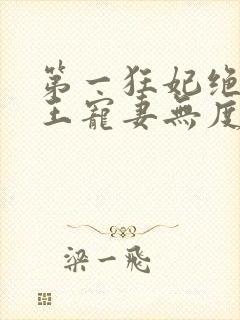 第一狂妃绝
王寵妻無度
梁一飛